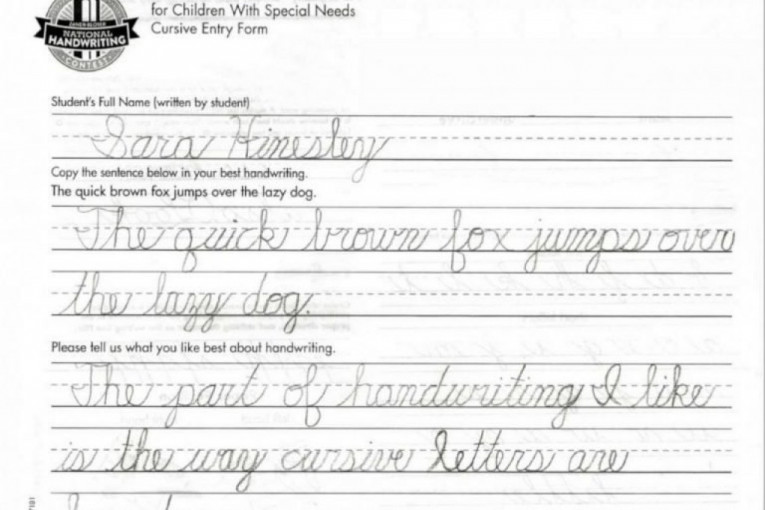 for Children With Special Needs
Cursive Entry Form
NATIONAL
HANDWRITING
CONTEST
Student's Full Name (written by student)
Sara Hinesley
Copy the sentence below in your best handwriting.
The quick brown fox jumps over the lazy dog.
The quick brown fox jumps over
the lazy dog.
Please tell us what you like best about handwriting.
The part of handwriting I like
is the way cursive letters are